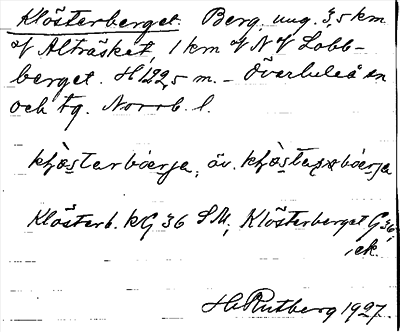 Klösterberget. Berg, ung. 3,5 km
V Alträsket, 1 km V N V Lobb-
berget. H 122,5 m. – Överluleå sn
och tg. Norrb. l.
Klösterb. kG 36 SM, Klösterberget G 36,
ek.
H. Rutberg 1927.